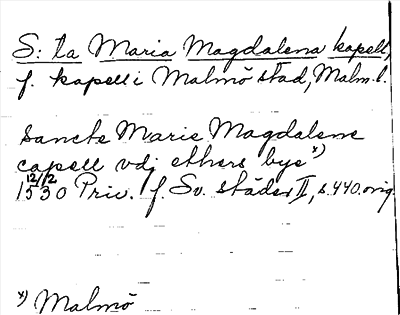 S:ta Maria Magdalena kapell,
f. kapell i Malmö stad, Malm.l.
Sancte Marie Magdalene
capell vdj ethers bye x)
12/12
1530 Priv. f. Sv. städer II, s.440.orig.
x) Malmö